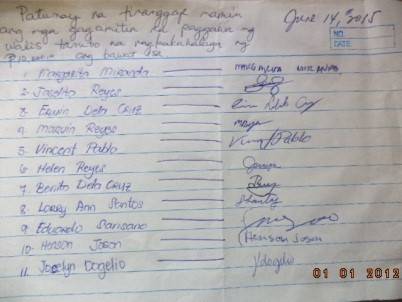 Patunay na tinanggap namin
June 14, 2015
ang mga gagamitin sa paggawa ng
NO.
DATE
walis tambo na nagkakahalaga ng
ang bawat isa
1. Margarita Miranda MARGARITA MIRANDA
2. Joselito Reyes
3. Erwin Dela Cruz Erwin Dela Cruz
4. Marvin Reyes
5. Vincent Pablo Vincent Pablo
6. Helen Reyes
7. Benita Dela Cruz
8. Lorry Ann Santos
9. Eduardo Sarisano
10. Henson Joson Henson Joson
11. Jocelyn Dogelio Jdogelio
01 01 2012